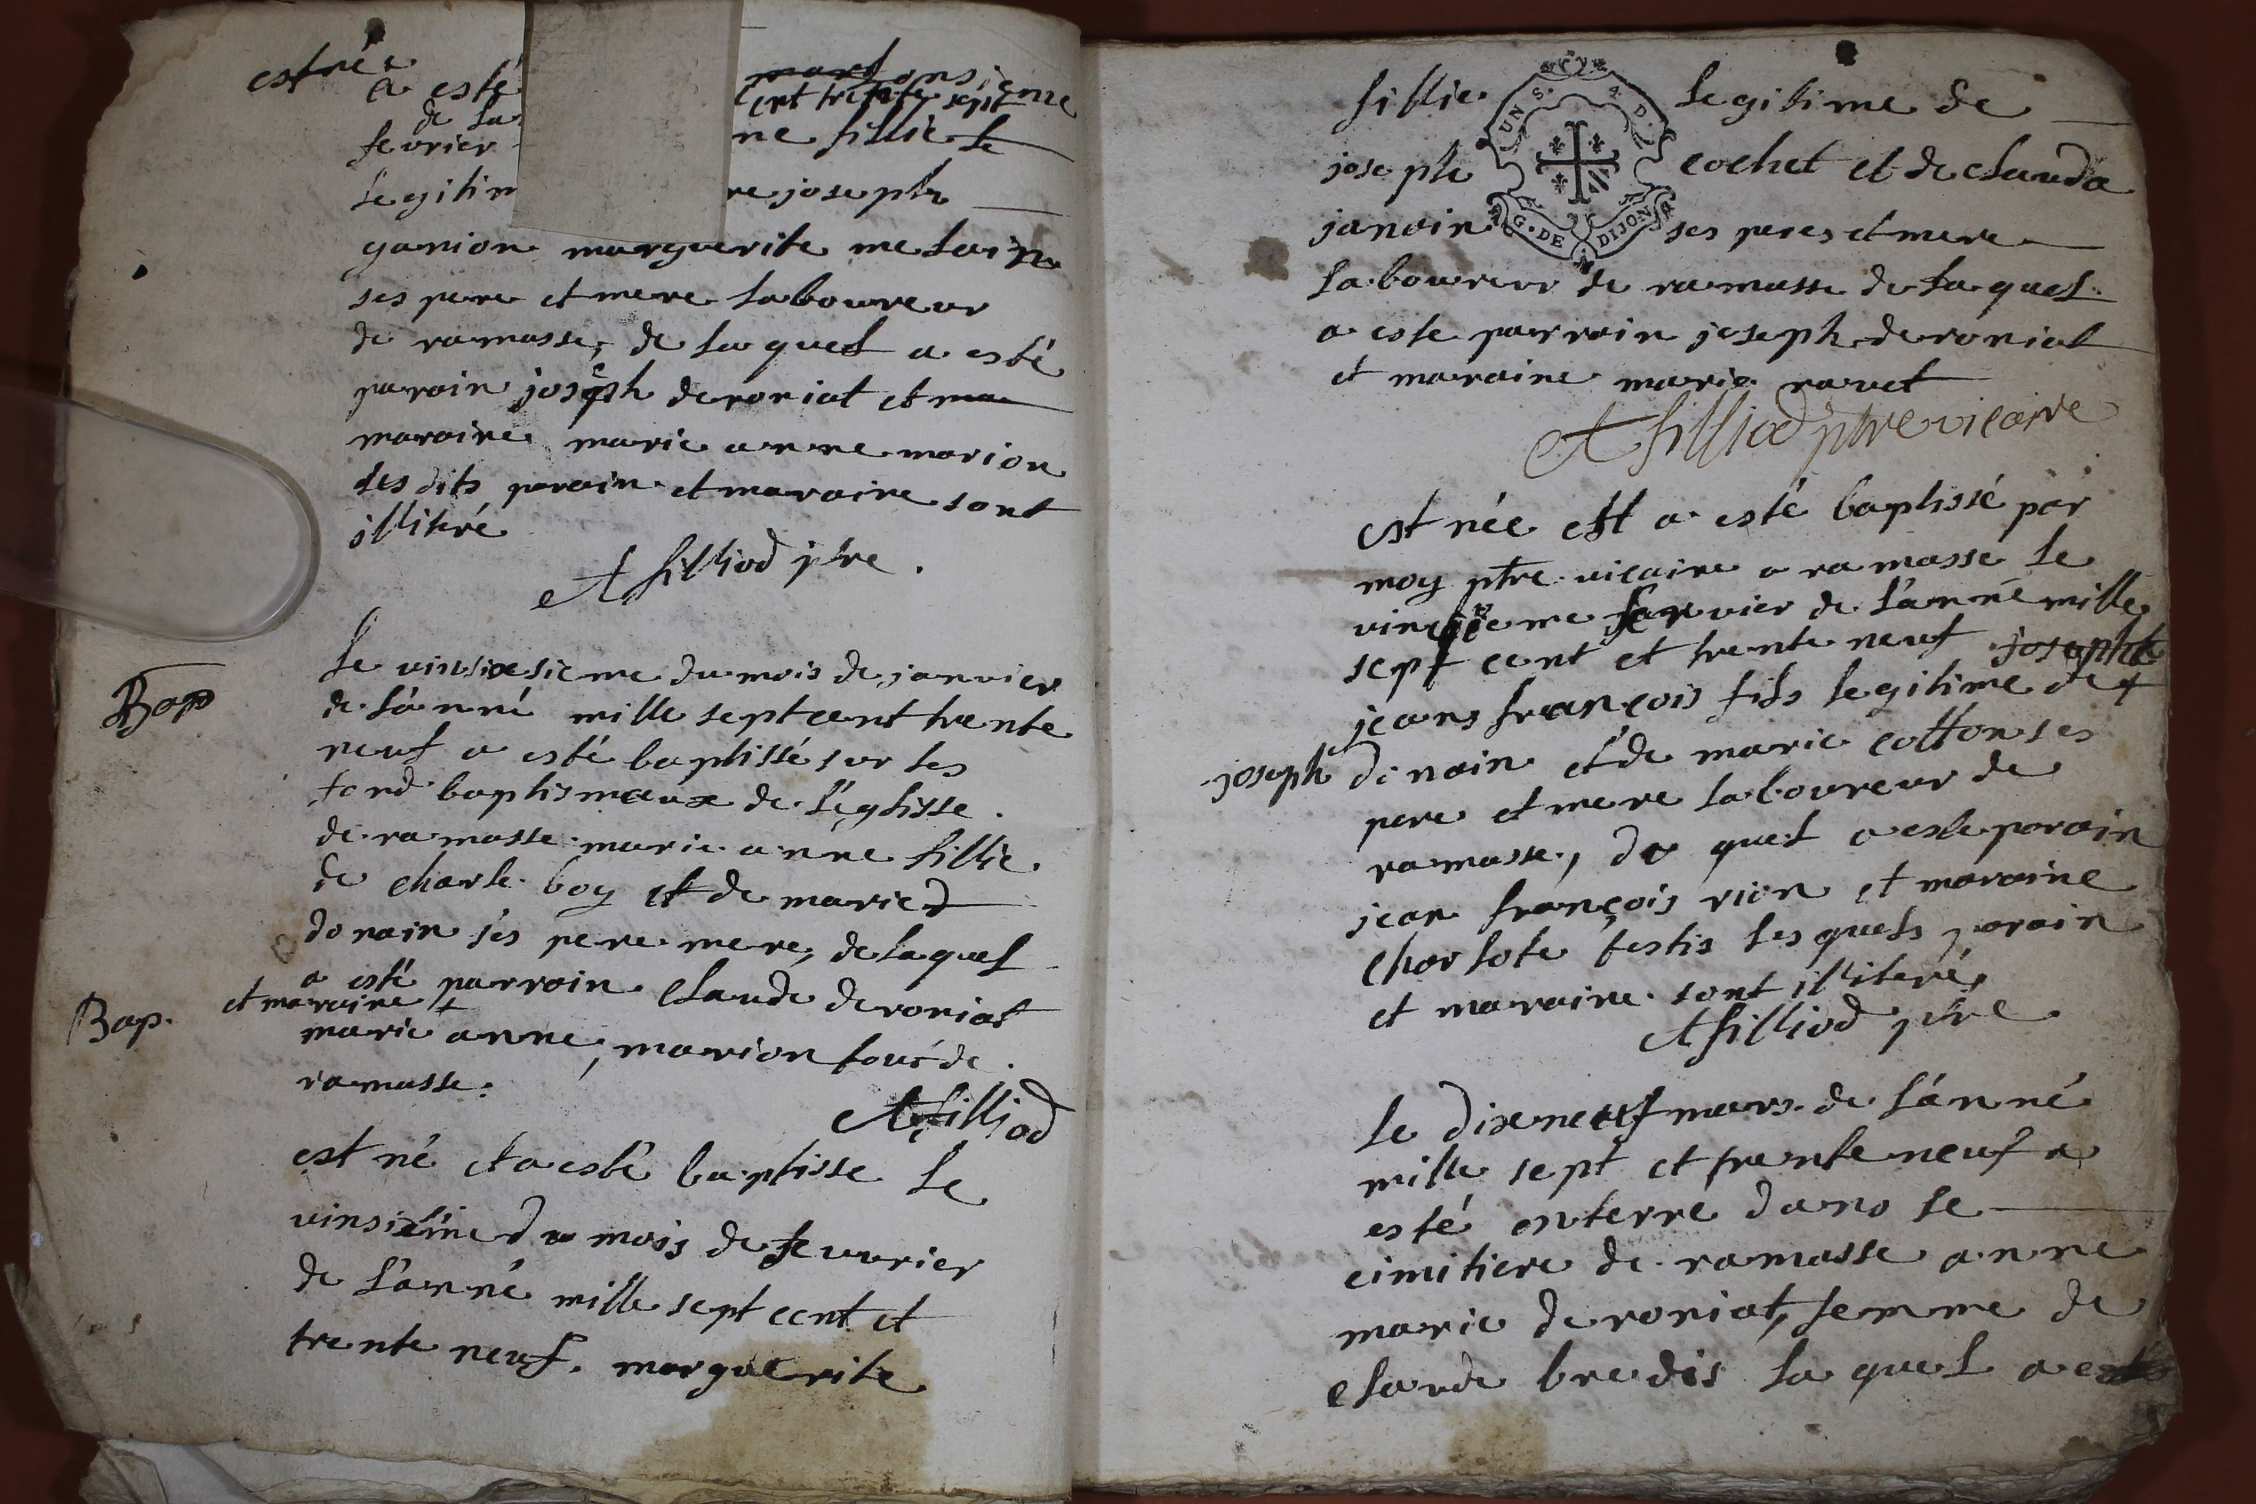 est née
a esté onsieme
de la cent trente sept
fevrier ne fillie le
legitim re joseph
ganion marguerite melain
ses pere et mere laboureur
de ramasse, de la quel a esté
parain joseph deroniat et
maraine marie anne marion
les dits parain et maraine sont
illiteré
A filliod ptre.
Bap
le vinsixsieme du mois de janvier
de l'ánné mille sept cent trente
neuf a esté baptissé sur les
fond baptismaux de l'églisse
de ramasse marie anne fillie
de charle boy et de marie
donain ses pere mere, de laquel
a esté parrain claude deroniat
Bap. et maraine +
marie anne, marion tout de
ramasse.
A filliod
est né et a esté baptisse le
vinsixime du mois de fevvrier
de l'ánné mille sept cent et
trente neuf. marguerite
fillie legitime de
UN S. 4. D.
G. DE DIJON
joseph cochet et de clauda
janoin ses peres et mere
laboureur de ramasse de la quel
a este parrain joseph deroniat
et maraine marie ravet
A filliod ptre vicaire
est née et a esté baptissé par
moy ptre vicaire a ramasse le
vintieme janvier de l'ánné mille
sept cent et trente neuf joseph
jeans françois fils legitime de +
joseph donain et de marie cotton ses
pere et mere laboureur de
ramasse, du quel a este parain
jean françois rion et maraine
charlote festis les quels parain
et maraine sont illiteré,
A filliod ptre
le dixneuf mars de l'ánné
mille sept et trente neuf a
esté enterré dans le
cimitiere de ramasse anne
marie deroniat, femme de
claude bredis la quel a